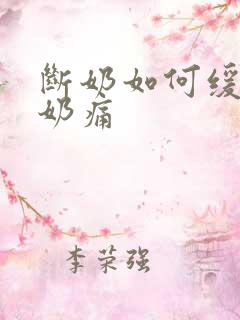 斷奶如何缓
奶痛
李荣强